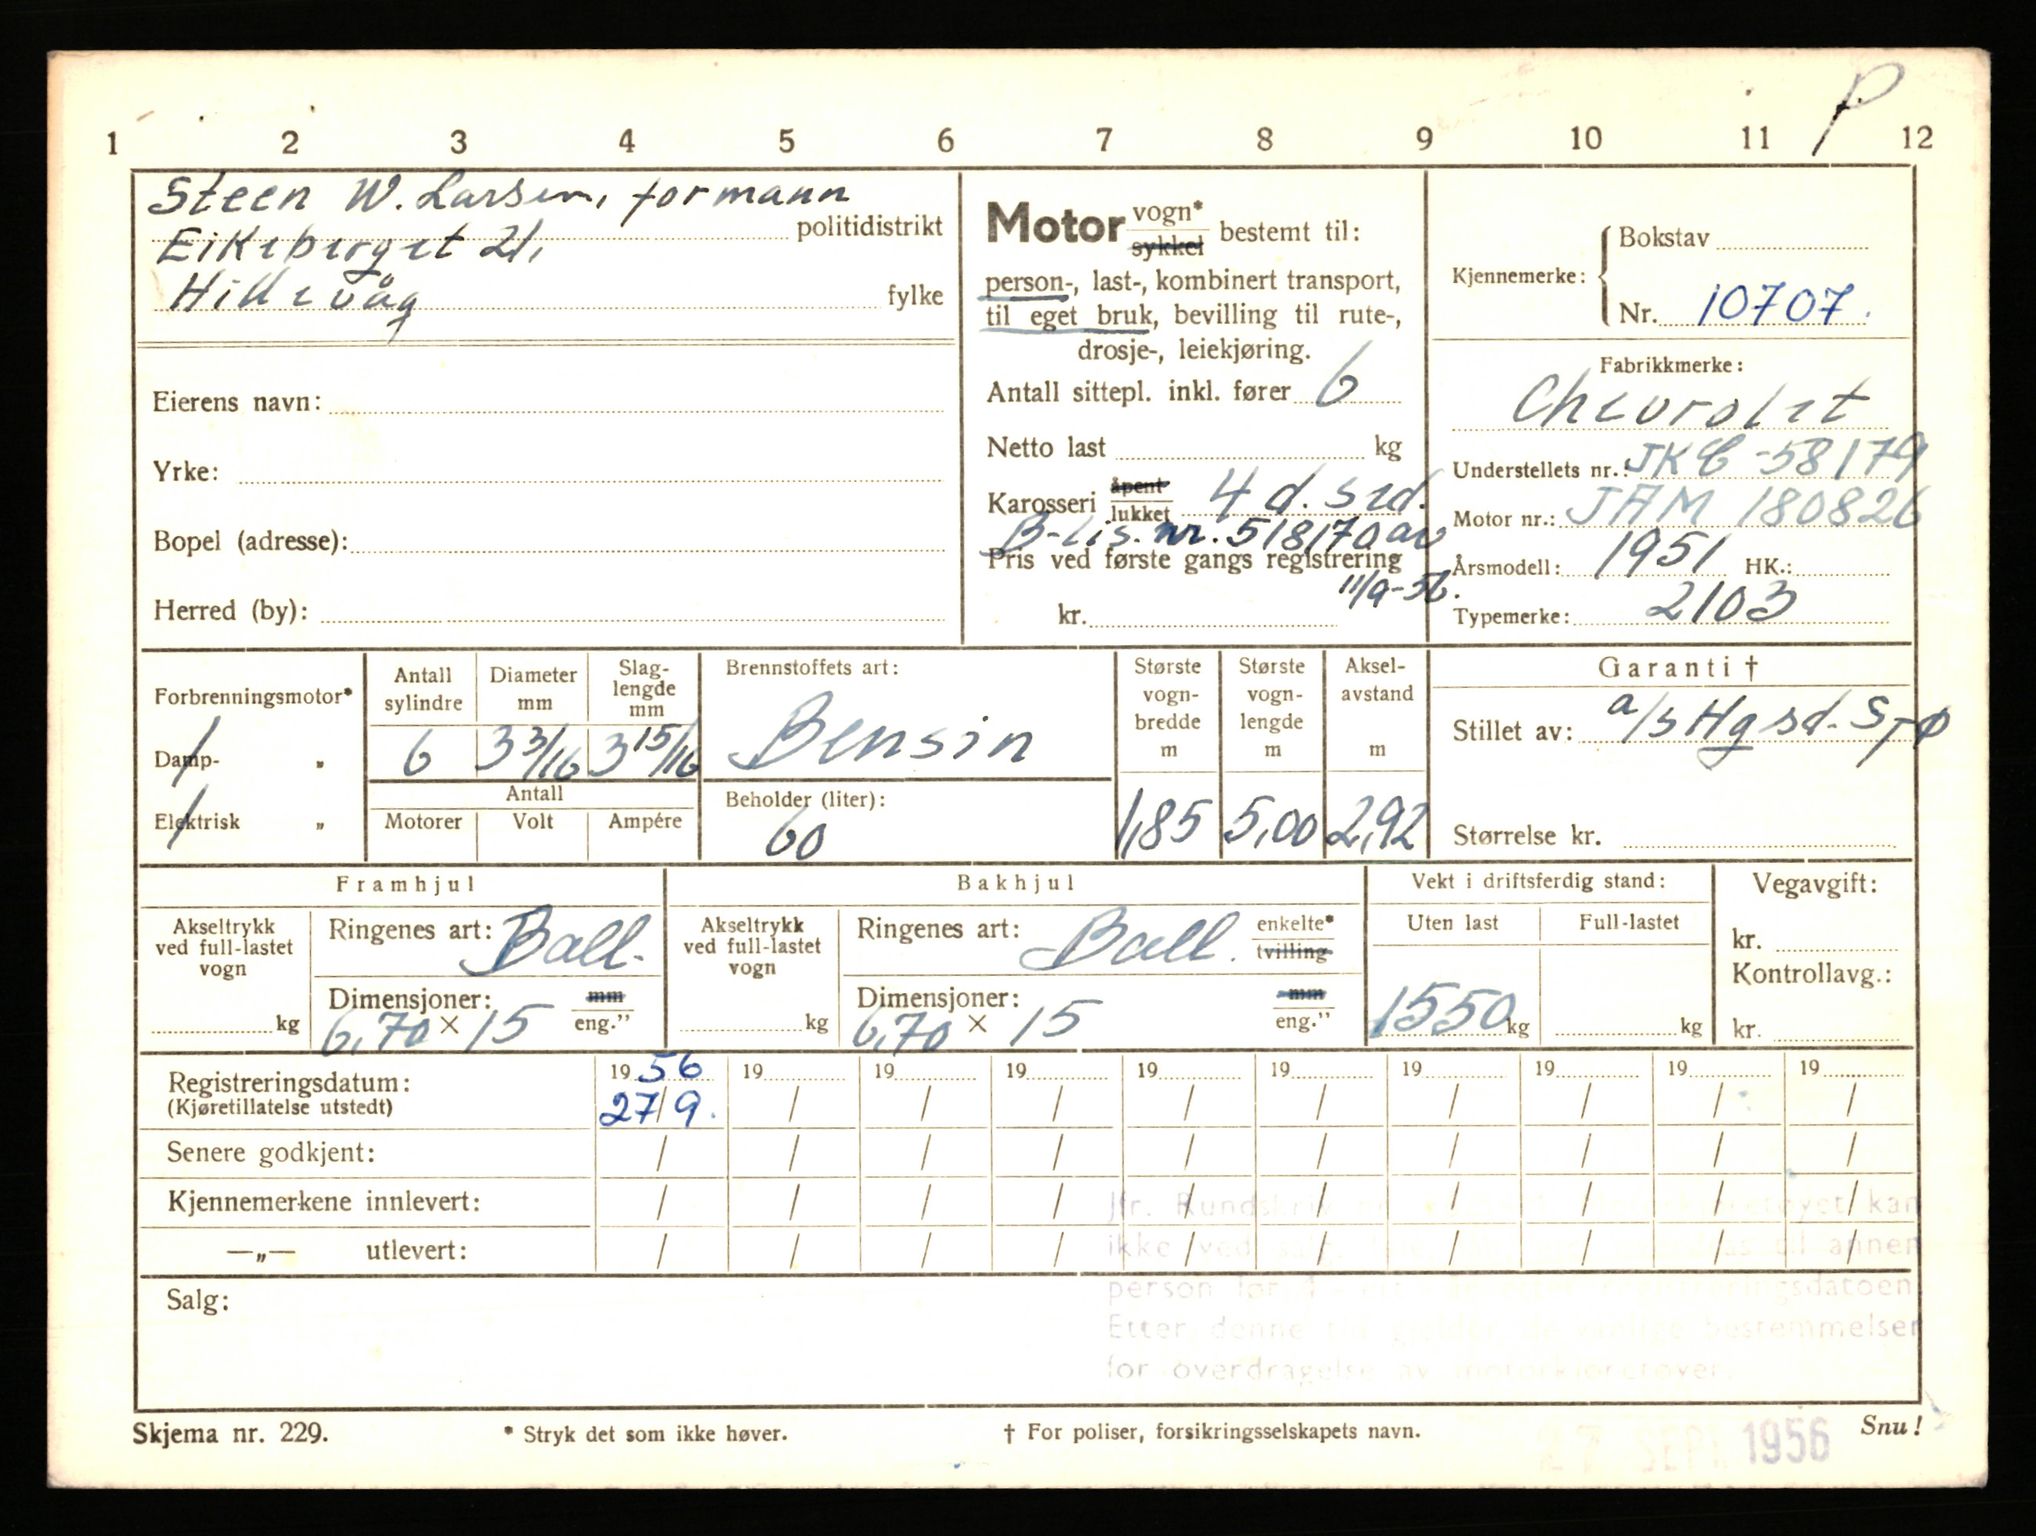 P
1 2 3 4 5 6 7 8 9 10 11 12
Steen W. Larsen, formann
politidistrikt
Eikeberget 21,
Hillevåg
fylke
Eierens navn:
Yrke:
Bopel (adresse):
Herred (by):
Motor vogn* sykkel bestemt til:
person-, last-, kombinert transport,
til eget bruk, bevilling til rute-,
drosje-, leiekjøring.
Antall sittepl. inkl. fører 6
Netto last kg
Karosseri åpent lukket 4 d. sed.
B-lis. nr. 518170 av
Pris ved første gangs registrering
11/9-56.
kr.
Kjennemerke: Bokstav
Nr. 10707.
Fabrikkmerke:
Chevrolet
Understellets nr.: JKC-58179
Motor nr.: JAM 180826
Årsmodell: 1951 HK.:
Typemerke: 2103
Forbrenningsmotor*
Damp- „
Elektrisk „
Antall sylindre
6
Diameter mm
3 3/16
Slag-lengde mm
3 15/16
Antall
Motorer Volt Ampére
Brennstoffets art:
Bensin
Beholder (liter):
60
Største vogn-bredde m
1,85
Største vogn-lengde m
5,00
Aksel-avstand m
2,92
Garanti †
Stillet av: a/s Hgsd. Spø
Størrelse kr.
Framhjul
Akseltrykk ved full-lastet vogn
kg
Ringenes art: Ball.
Dimensjoner: mm
6,70 × 15 eng."
Bakhjul
Akseltrykk ved full-lastet vogn
kg
Ringenes art: Ball. enkelte* tvilling
Dimensjoner: mm
6,70 × 15 eng."
Vekt i driftsferdig stand:
Uten last Full-lastet
1550 kg kg
Vegavgift:
kr.
Kontrollavg.:
kr.
Registreringsdatum: 19 56 19 19 19 19 19 19 19 19 19
(Kjøretillatelse utstedt) 27/9. / / / / / / / / /
Senere godkjent: / / / / / / / / / /
Kjennemerkene innlevert: / / / / / / / / / /
—„— utlevert: / / / / / / / / / /
Jfr. kan
ikke ved til annen
person
Etter denne bestemmelser
for overdragelse av motorkjøretøyer.
Salg:
Skjema nr. 229.
* Stryk det som ikke høver.
† For poliser, forsikringsselskapets navn.
Snu!
27 SEPT. 1956